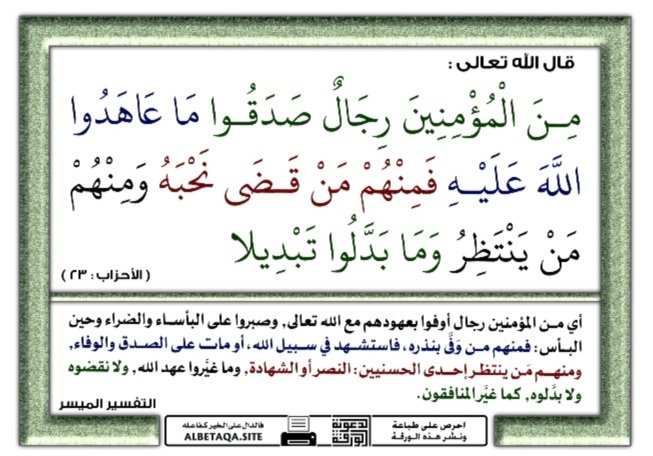 قال الله تعالى :
مِـنَ الْمُؤْمِنِينَ رِجَالٌ صَدَقُـوا مَا عَاهَدُوا
اللَّهَ عَلَيْـهِ فَمِنْهُمْ مَنْ قَـضَى نَحْبَهُ وَمِنْهُمْ
مَنْ يَنْتَظِرُ وَمَا بَدَّلُوا تَبْدِيلا
( الأحزاب : ٢٣ )
أي مـن المؤمنين رجال أوفوا بعهودهم مع الله تعالى, وصبروا على البأسـاء والضراء وحين
البـأس: فمنهم مـن وَفَّى بنذره، فاستشهد في سـبيل الله، أو مات على الصـدق والوفاء,
ومنهـم مَن ينتظر إحـدى الحسنيين: النصر أو الشهادة, وما غيَّروا عهد الله, ولا نقضوه
ولا بدَّلوه, كما غيَّر المنافقون.
التفسير الميسر
احرص على طباعة
ونشر هذه الورقة
لدعوية
الورقة
فالدال على الخير كفاعله
ALBETAQA.SITE